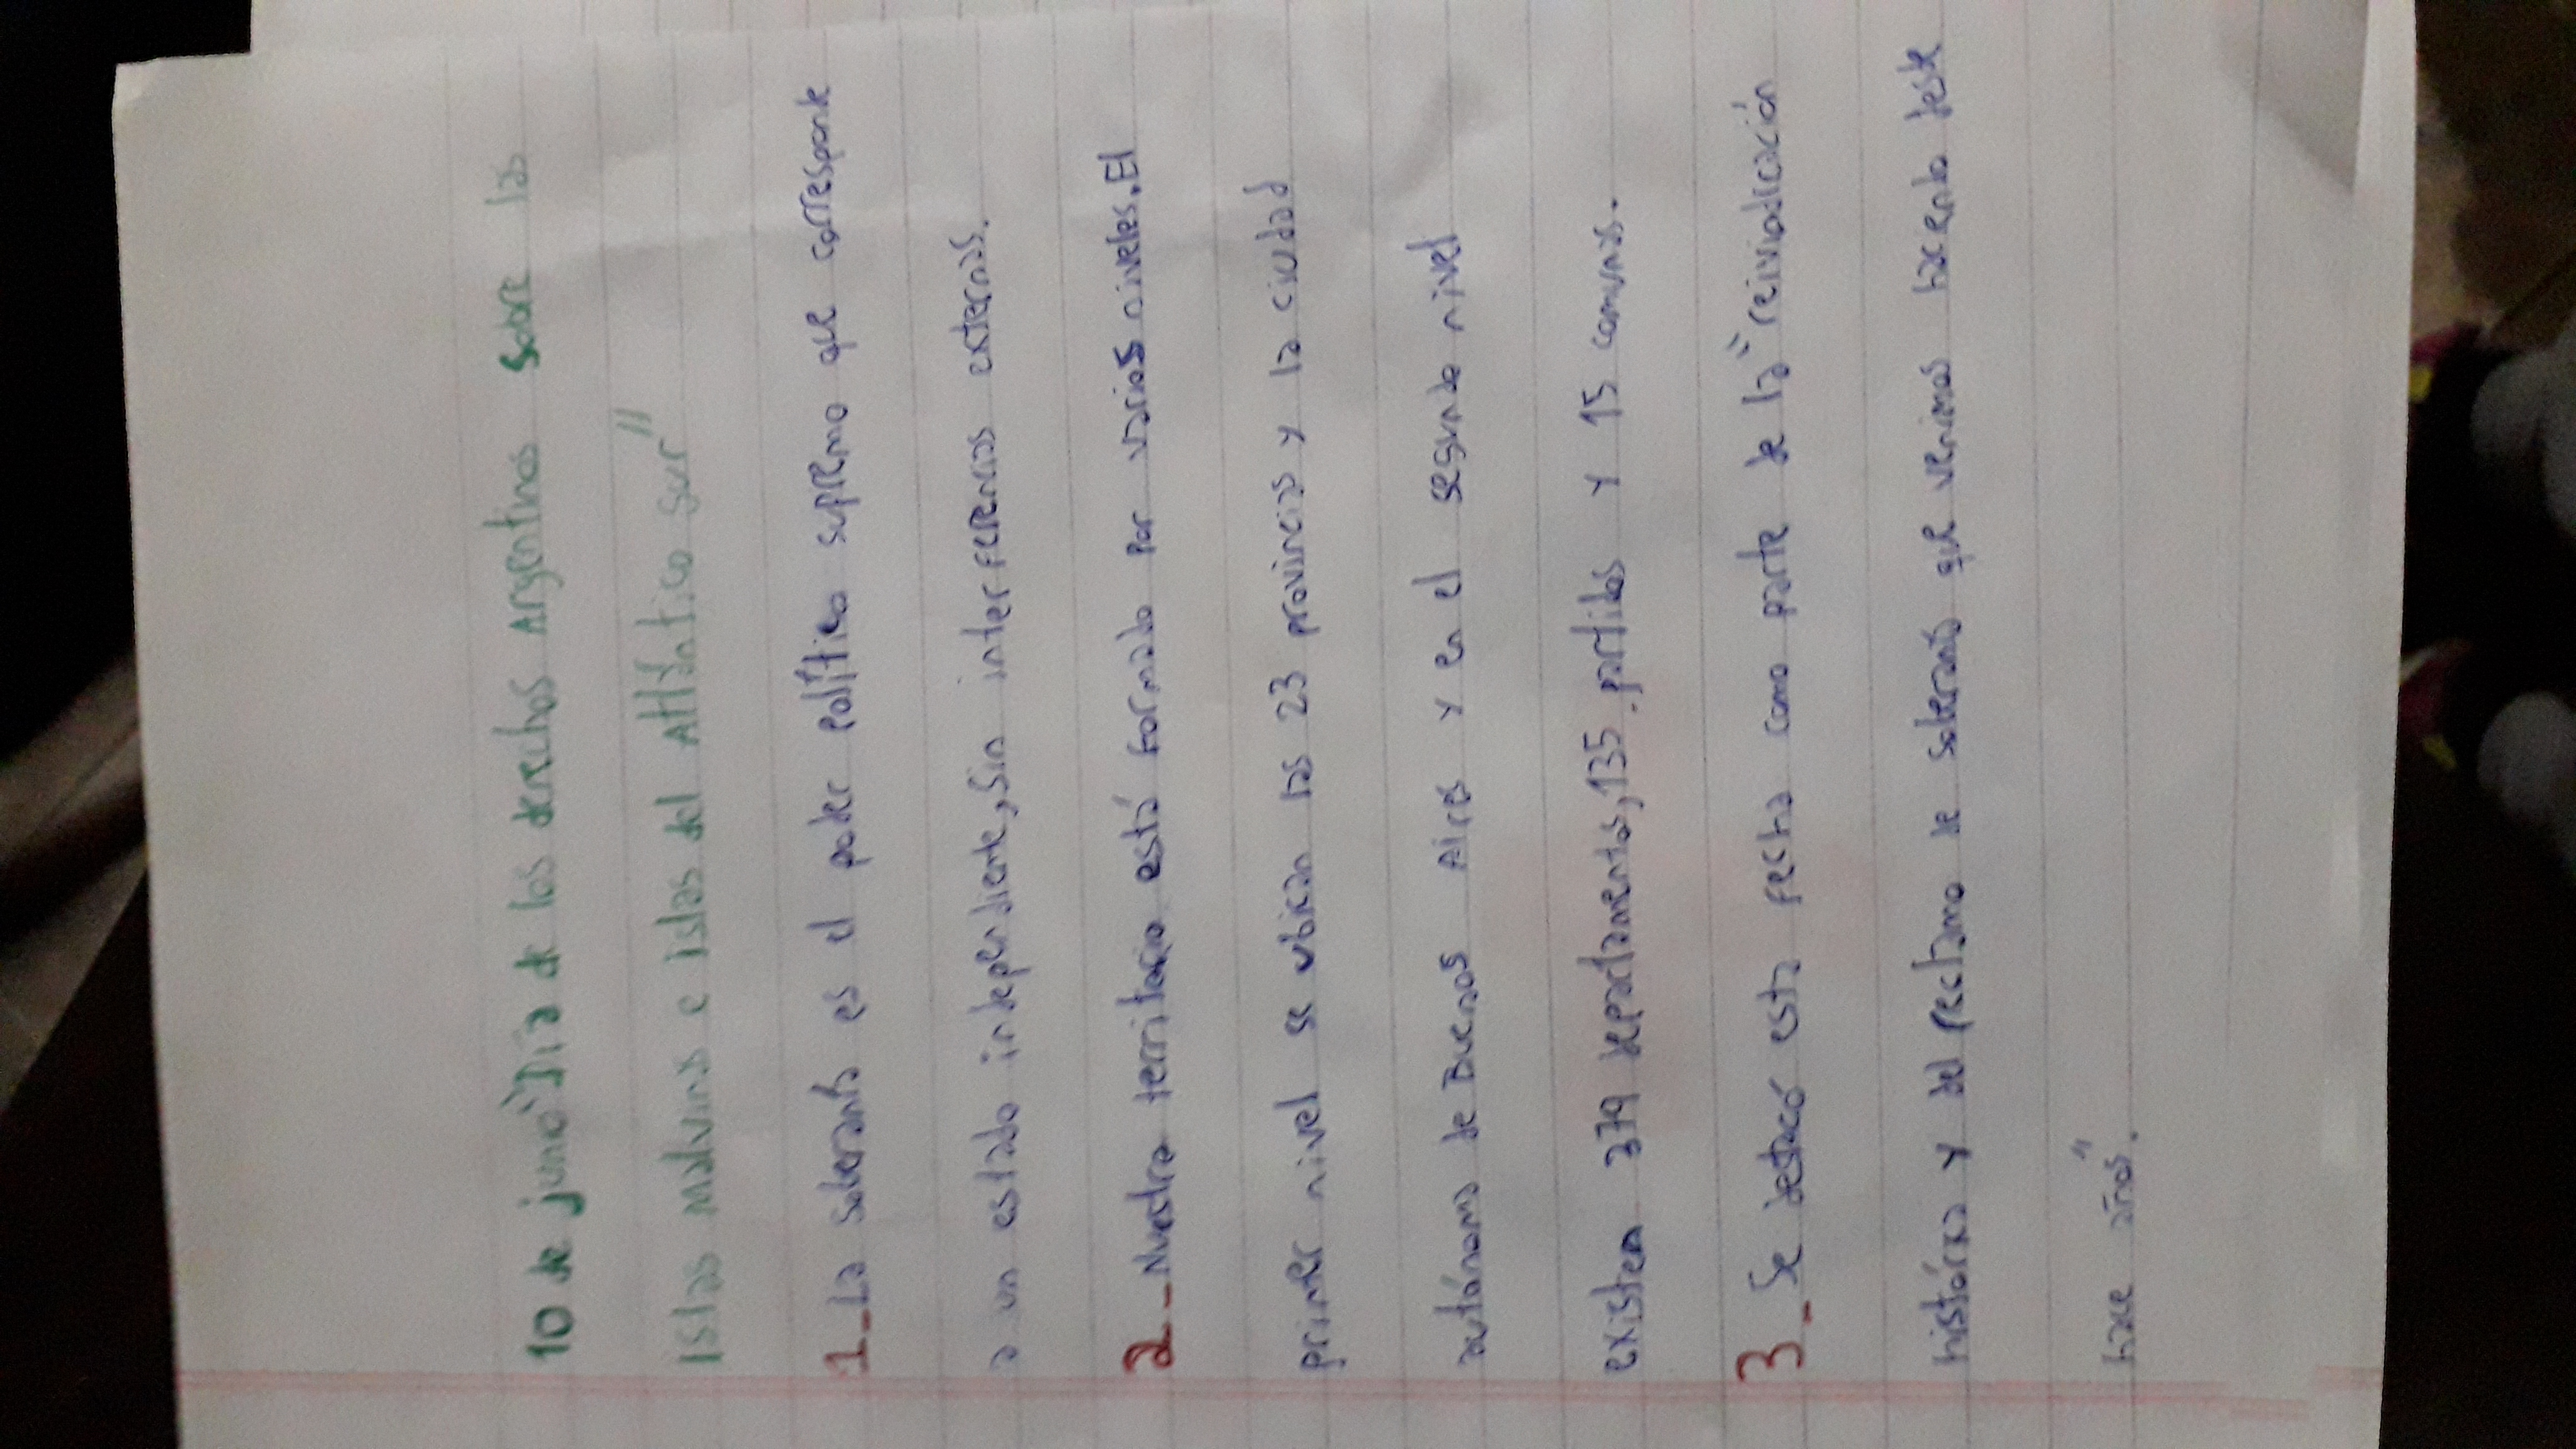 10 de junio "Día de los derechos Argentinos sobre las
Islas Malvinas e Islas del Atlántico Sur"
1_La soberanía es el poder Político supremo que corresponde
a un estado independiente, sin interferencias externas.
2_Nuestro territorio está formado por varios niveles. El
primer nivel se ubican las 23 provincias y la ciudad
autónoma de Buenos Aires y en el segundo nivel
existen 379 departamentos, 135 partidos y 15 comunas.
3_Se destacó esta fecha como parte de la "reivindicación
histórica y del reclamo de soberanía que venimos haciendo desde
hace años".